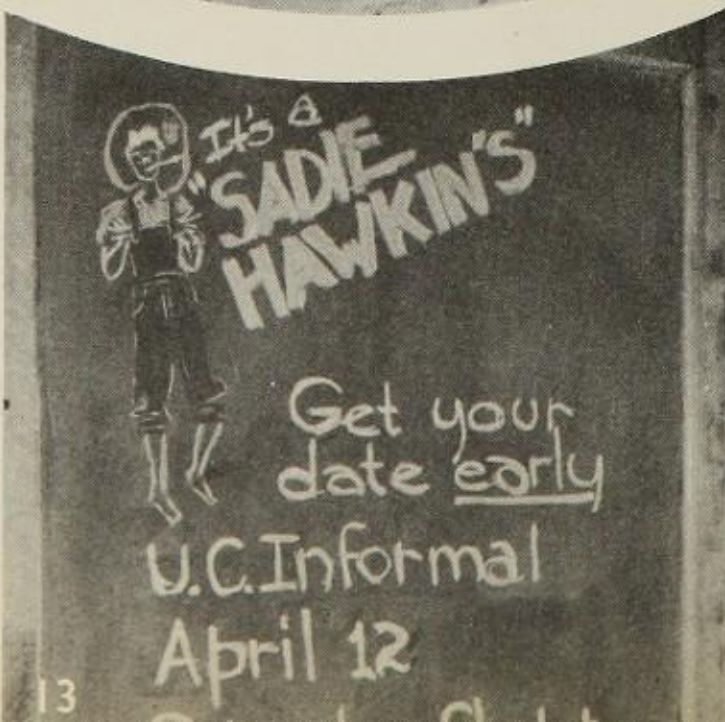 It's a
"SADIE
HAWKIN'S"
Get your
date early
U.C. Informal
April 12
13